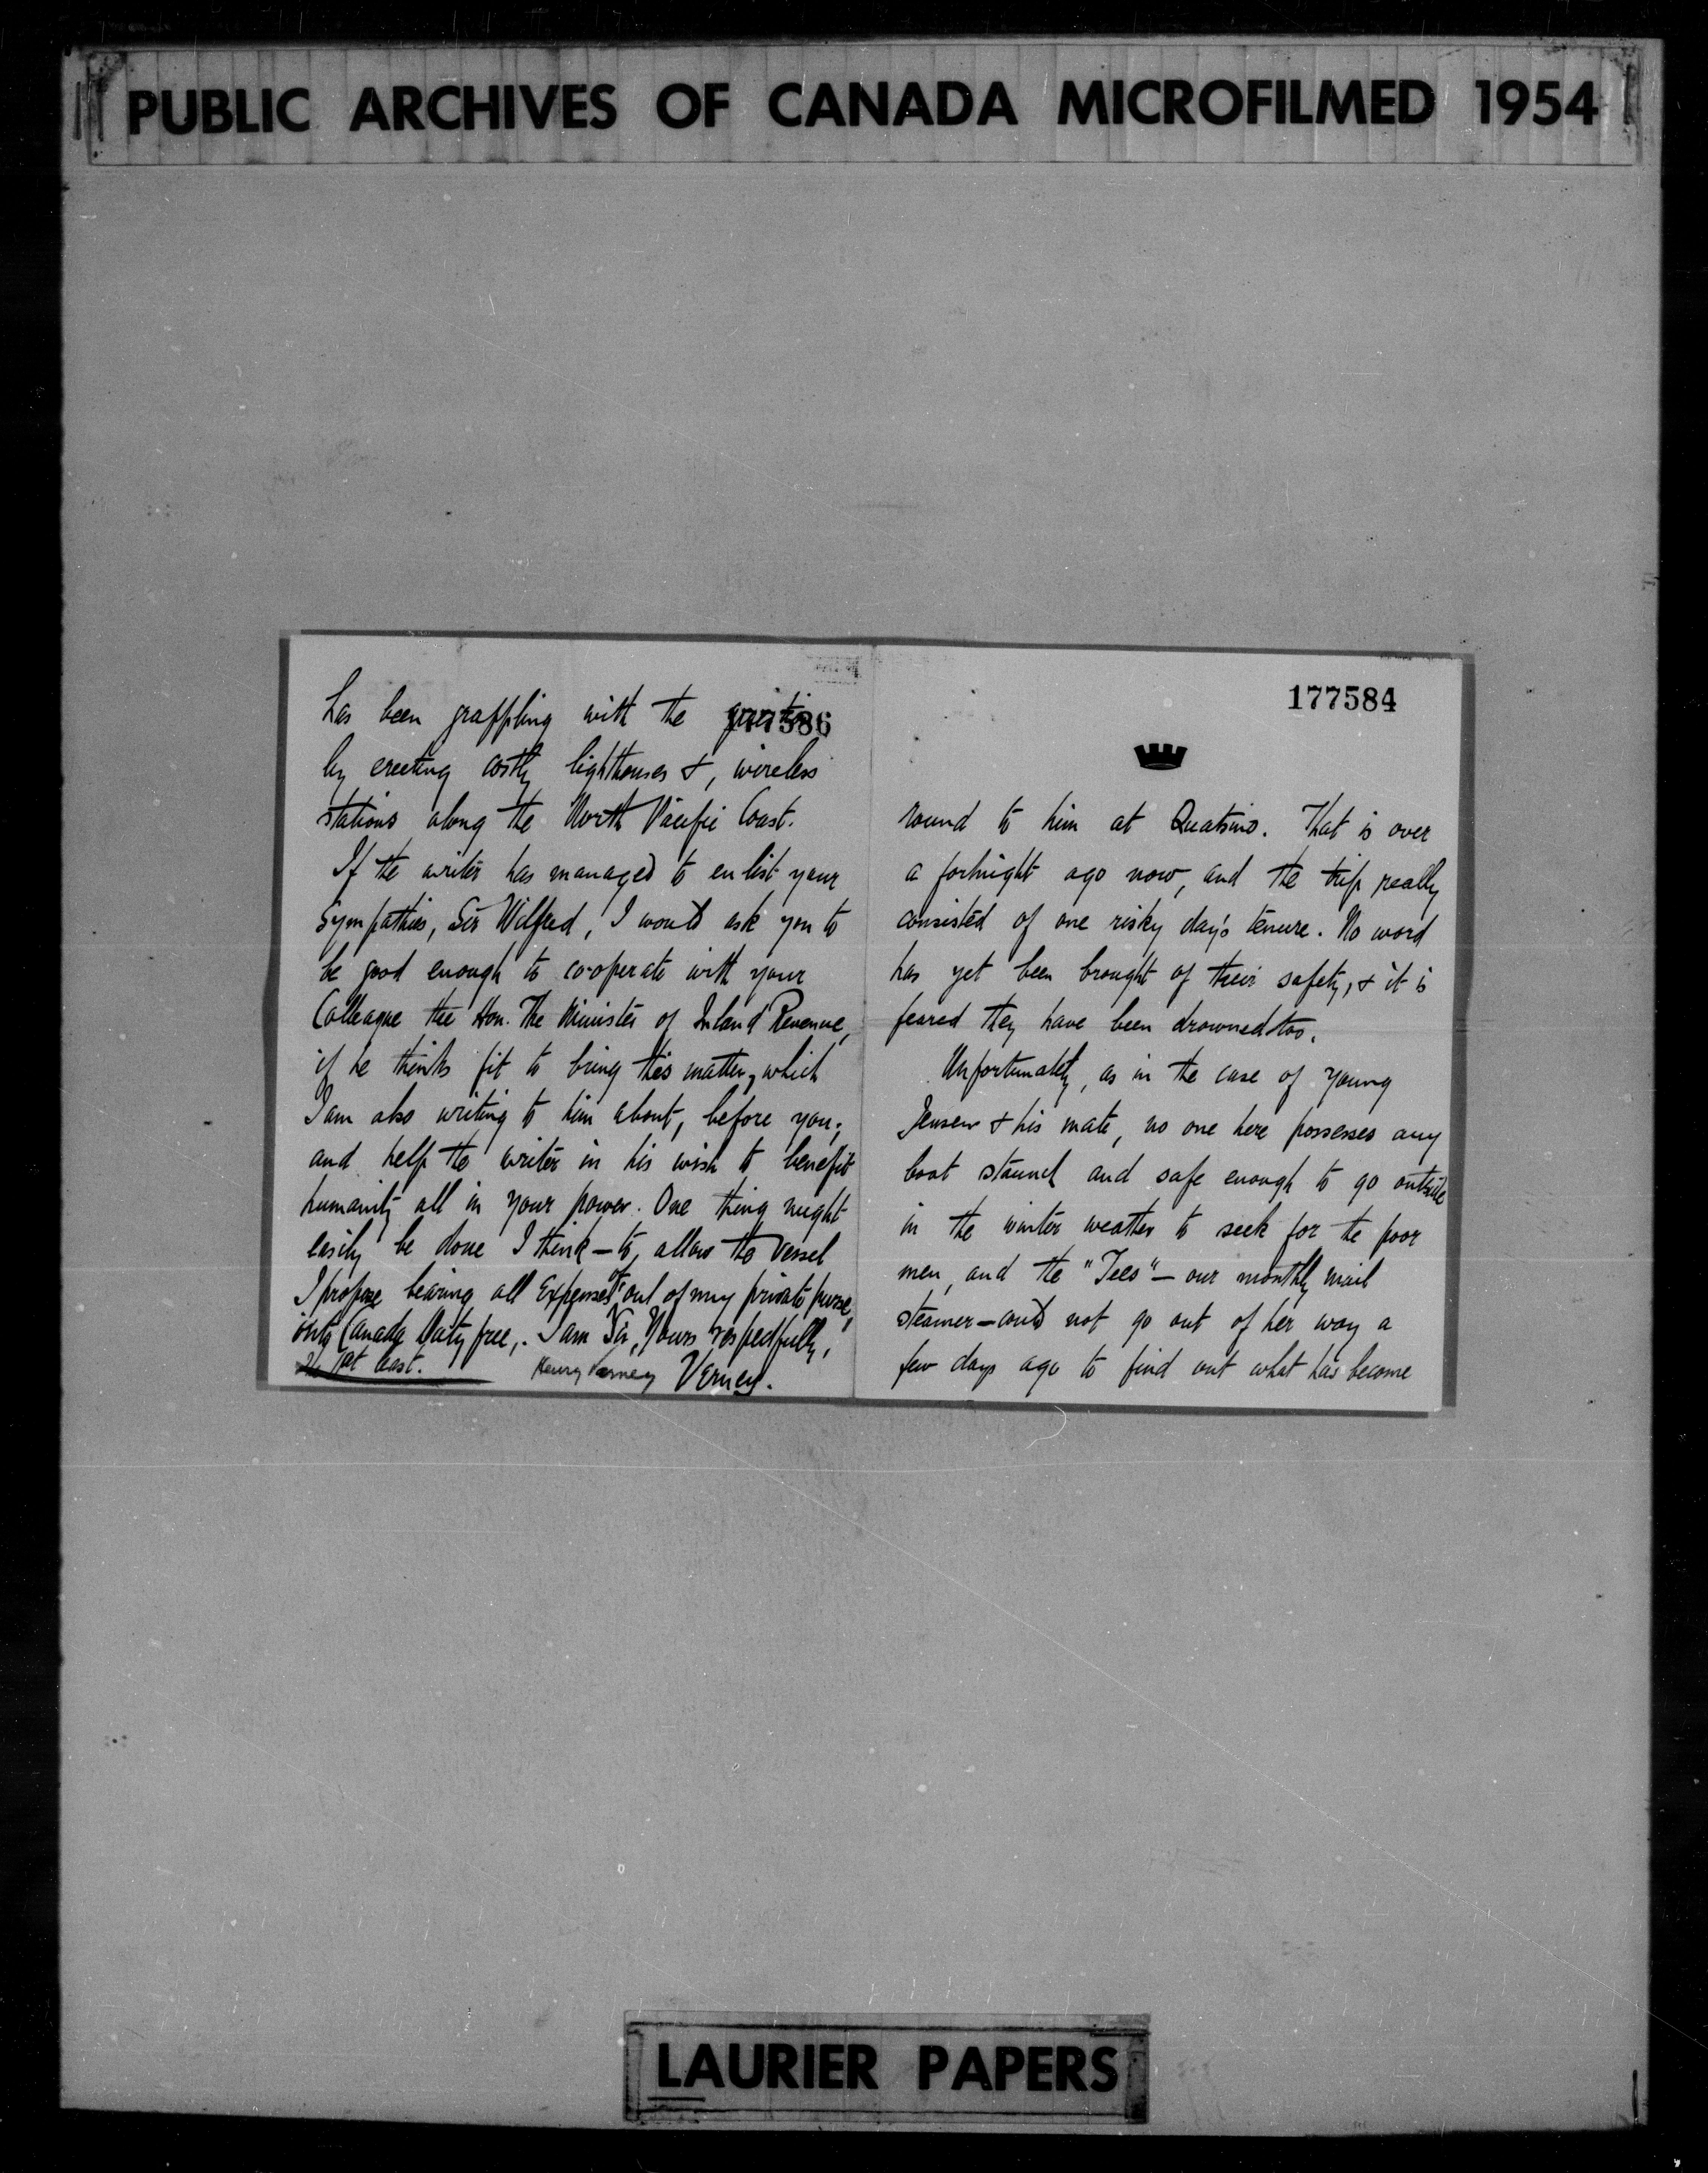 PUBLIC ARCHIVES OF CANADA MICROFILMED 1954
177586
has been grappling with the question
by erecting costly lighthouses &, wireless
stations along the North Pacific Coast.
If the writer has managed to enlist your
sympathies, Sir Wilfred, I would ask you to
be good enough to cooperate with your
Colleague the Hon. The Minister of Inland Revenue,
if he thinks fit to bring this matter, which
I am also writing to him about, before you;
and help the writer in his wish to benefit
humanity all in your power. One thing might
easily be done I think - to allow the vessel
I propose bearing all Expenses of out of my private purse,
into Canada Duty free,. I am Sir, Yours respectfully,
at least. Henry Verney Verney.
177584
round to him at Quatsino. That is over
a fortnight ago now, and the trip really
consisted of one risky day's tenure. No word
has yet been brought of their safety, & it is
feared they have been drowned too.
Unfortunately, as in the case of young
Jensen & his mate, no one here possesses any
boat staunch and safe enough to go outside
in the winter weather to seek for the poor
men, and the "Tees" - our monthly mail
steamer - could not go out of her way a
few days ago to find out what has become
LAURIER PAPERS